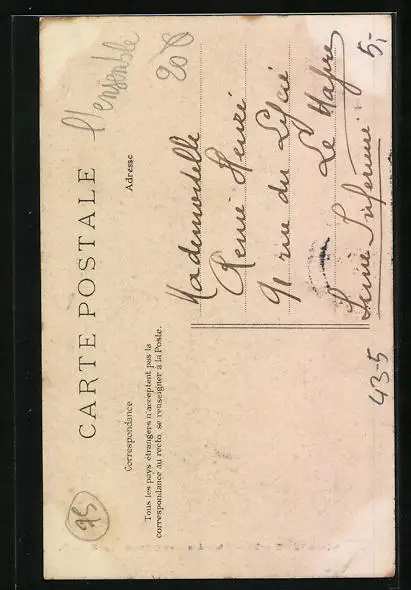 l'ensemble
CARTE POSTALE
Correspondance
Adresse
Tous les pays étrangers n'acceptent pas la
correspondance au recto, se renseigner à la Poste.
Mademoiselle
Renée
91 rue du Lycée
Le Havre
Seine Inférieure
95
200
5,-
43-5